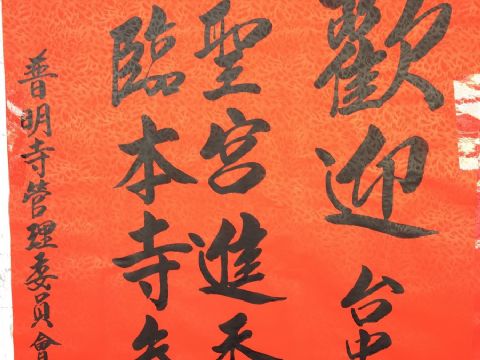 歡迎 台中
聖宮進香
臨本寺參
普明寺管理委員會